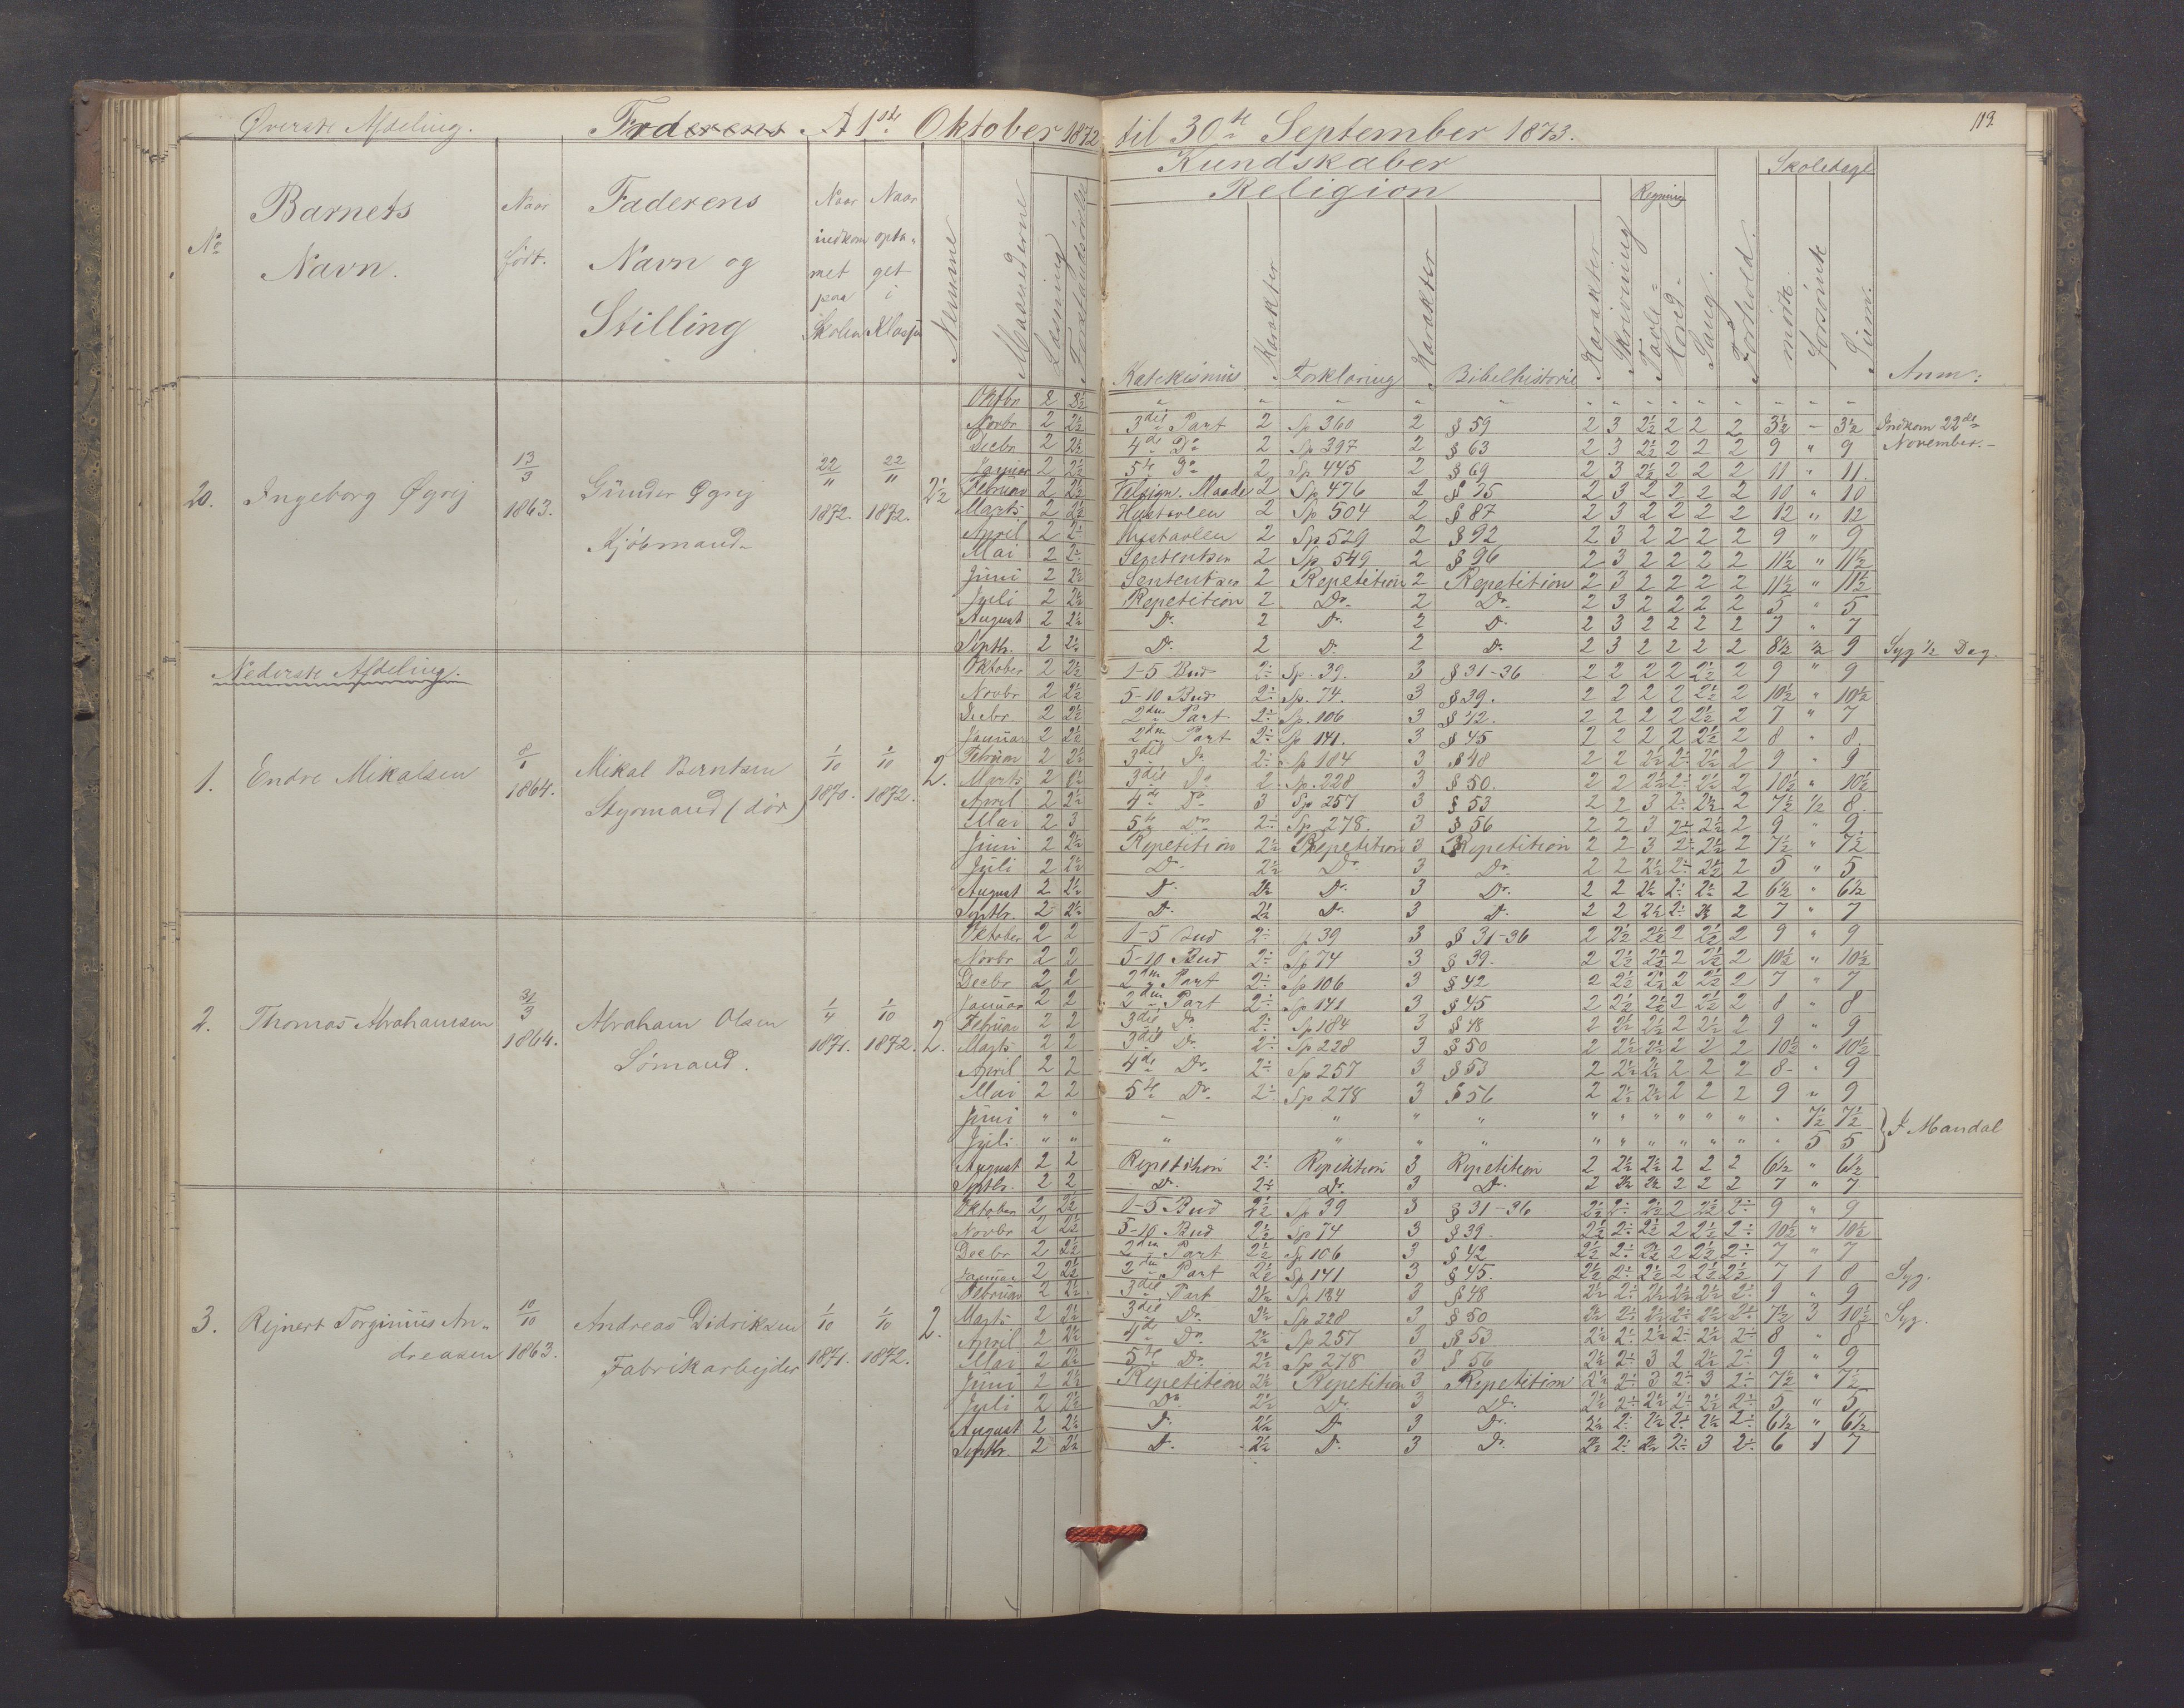 Øverste Afdeling. Faderens A 1ste Oktober 1872 til 30te September 1873. 113
Kundskaber Skoledage
Religion Regning
No Barnets Navn. Naar født. Faderens Navn og Stilling Naar indkommet paa Skolen Naar optaget i Klassen Nemme Maanederne Læsning Forstandsøvelse Katekismus Karakter Forklaring Karakter Bibelhistorie Karakter Skrivning Tavle= Hoved- Sang. Forhold. mødt. forsømt Sum. Anm:
20. Ingeborg Øgrej 13/3 1863. Gunder Øgrej Kjøbmand 22/11 1872. 22/11 1872. 2½
Oktbr 2 2½ " " " " " " " " " " " " " "
Novbr 2 2½ 3die Part 2 Sp 360 2 § 59 2 3 2½ 2 2 2 3½ - 3½ Indkom 22de
Decbr 2 2½ 4de Do 2 Sp 397 2 § 63 2 3 2½ 2 2 2 9 " 9 November.-
Januar 2 2½ 5te Do 2 Sp 445 2 § 69 2 3 2½ 2 2 2 11 " 11.
Februar 2 2½ Velsign. Maade 2 Sp 476 2 § 75 2 3 2 2 2 2 10 " 10
Marts 2 2½ Hustavlen 2 Sp 504 2 § 87 2 3 2 2 2 2 12 " 12
April 2 2÷ Hustavlen 2 Sp 529 2 § 92 2 3 2 2 2 2 9 " 9
Mai 2 2÷ Sententser 2 Sp 549 2 § 96 2 3 2 2 2 2 11½ " 11½
Juni 2 2½ Sententser 2 Repetition 2 Repetition 2 3 2 2 2 2 11½ " 11½
Juli 2 2½ Repetition 2 Do. 2 Do. 2 3 2 2 2 2 5 " 5
August 2 2½ Do. 2 Do. 2 Do. 2 3 2 2 2 2 7 " 7
Septbr. 2 2÷ Do. 2 Do. 2 Do. 2 3 2 2 2 2 8½ ½ 9 Syg ½ Dag.
Nederste Afdeling.
1. Endre Mikalsen 8/1 1864. Mikal Berntsen Styrmand (død) 1/10 1870. 1/10 1872. 2.
Oktober 2 2½ 1-5 Bud 2÷ Sp. 39. 3 § 31-36 2 2 2 2 2½ 2 9 " 9
Novbr 2 2½ 5-10 Bud 2÷ Sp. 74. 3 § 39. 2 2 2 2 2½ 2 10½ " 10½
Decbr. 2 2½ 2den Part 2÷ Sp. 106 3 § 42. 2 2 2 2 2½ 2 7 " 7
Januar 2 2½ 2den Part 2÷ Sp 141. 3 § 45 2 2 2 2 2½ 2 8 " 8.
Februar 2 2½ 3die Do 2÷ Sp 184 3 § 48 2 2 2½ 2÷ 2½ 2 9 " 9
Marts 2 2½ 3die Do 2÷ Sp. 228 3 § 50. 2 2 2½ 2÷ 2½ 2 10½ " 10½
April 2 2½ 4de Do 3 Sp 257 3 § 53 2 2 3 2÷ 2½ 2 7½ ½ 8.
Mai 2 3 5te Do 2÷ Sp 278. 3 § 56 2 2 3 2÷ 2½ 2 9 " 9
Juni 2 2½ Repetition 2½ Repetition 3 Repetition 2 2 3 2÷ 2½ 2 7½ " 7½
Juli 2 2½ Do 2½ Do. 3 Do. 2 2 2½ 2÷ 2½ 2 5 " 5
August 2 2½ Do. 2½ Do. 3 Do. 2 2 2½ 2÷ 2½ 2 6½ " 6½
Septbr. 2 2½ Do. 2½ Do. 3 Do. 2 2 2½ 2÷ 2½ 2 7 " 7
2. Thomas Abrahamsen 31/3 1864. Abraham Olsen Sømand. 1/4 1871. 1/10 1872. 2.
Oktober 2 2 1-5 Bud 2÷ Sp 39 3 § 31-36 2 2½ 2½ 2 2½ 2 9 " 9
Novbr 2 2 5-10 Bud 2÷ Sp 74 3 § 39. 2 2½ 2½ 2 2½ 2 10½ " 10½
Decbr 2 2 2den Part 2÷ Sp 106 3 § 42 2 2½ 2½ 2 2½ 2 7 " 7
Januar 2 2 2den Part 2÷ Sp 141 3 § 45 2 2½ 2½ 2 2½ 2 8 " 8
Februar 2 2 3die Do. 2÷ Sp 184 3 § 48 2 2½ 2½ 2 2½ 2 9 " 9
Marts 2 2 3die Do. 2÷ Sp 228 3 § 50 2 2½ 2½ 2 2 2 10½ " 10½
April 2 2 4de Do. 2÷ Sp 257 3 § 53 2 2½ 2½ 2 2 2 8- " 9
Mai 2 2 5te Do. 2÷ Sp 278 3 § 56 2 2½ 2½ 2 2 2 9 " 9
Juni " " " " " " " " " " " " " 7½ 7½ } I Mandal
Juli " " " " " " " " " " " " " 5 5
August 2 2 Repetition 2÷ Repetition 3 Repetition 2 2½ 2½ 2 2 2 6½ " 6½
Septbr. 2 2 Do. 2÷ Do. 3 Do. 2 2½ 2½ 2 2 2 7 " 7
3. Rejnert Torginius Andreasen 10/10 1863. Andreas Didriksen Fabrikarbejder 1/10 1871. 1/10 1872. 2.
Oktober 2 2½ 1-5 Bud 2½ Sp 39 3 § 31-36 2½ 2÷ 2½ 2 2½ 2÷ 9 " 9
Novbr 2 2½ 5-10 Bud 2½ Sp 74 3 § 39. 2½ 2÷ 2½ 2 2½ 2÷ 10½ " 10½
Decbr 2 2½ 2den Part 2½ Sp 106 3 § 42 2½ 2÷ 2½ 2 2½ 2÷ 7 " 7
Januar 2 2½ 2den Part 2½ Sp 141 3 § 45. 2½ 2÷ 2½ 2 2½ 2½ 7 1 8 Syg.
Februar 2 2½ 3die Part 2½ Sp 184 3 § 48 2½ 2÷ 2½ 2½ 2½ 2÷ 9 " 9
Marts 2 2½ 3die Do. 2½ Sp 228 3 § 50 2½ 2÷ 2½ 2÷ 2½ 2÷ 7½ 3 10½ Syg.
April 2 2½ 4de Do. 2½ Sp 257 3 § 53 2½ 2÷ 2½ 2÷ 2½ 2÷ 8 " 8
Mai 2 2½ 5te Do. 2½ Sp 278 3 § 56 2½ 2÷ 3 2 2½ 2÷ 9 " 9
Juni 2 2½ Repetition 2½ Repetition 3 Repetition 2½ 2÷ 3 2÷ 3 2÷ 7½ " 7½
Juli 2 2½ Do 2½ Do. 3 Do. 2½ 2÷ 2½ 2÷ 2½ 2÷ 5 " 5
August 2 2½ Do. 2½ Do 3 Do. 2½ 2÷ 2½ 2÷ 2½ 2÷ 6½ " 6½
Septbr. 2 2½ Do. 2½ Do. 3 Do. 2½ 2÷ 2½ 2÷ 3 2÷ 6 1 7